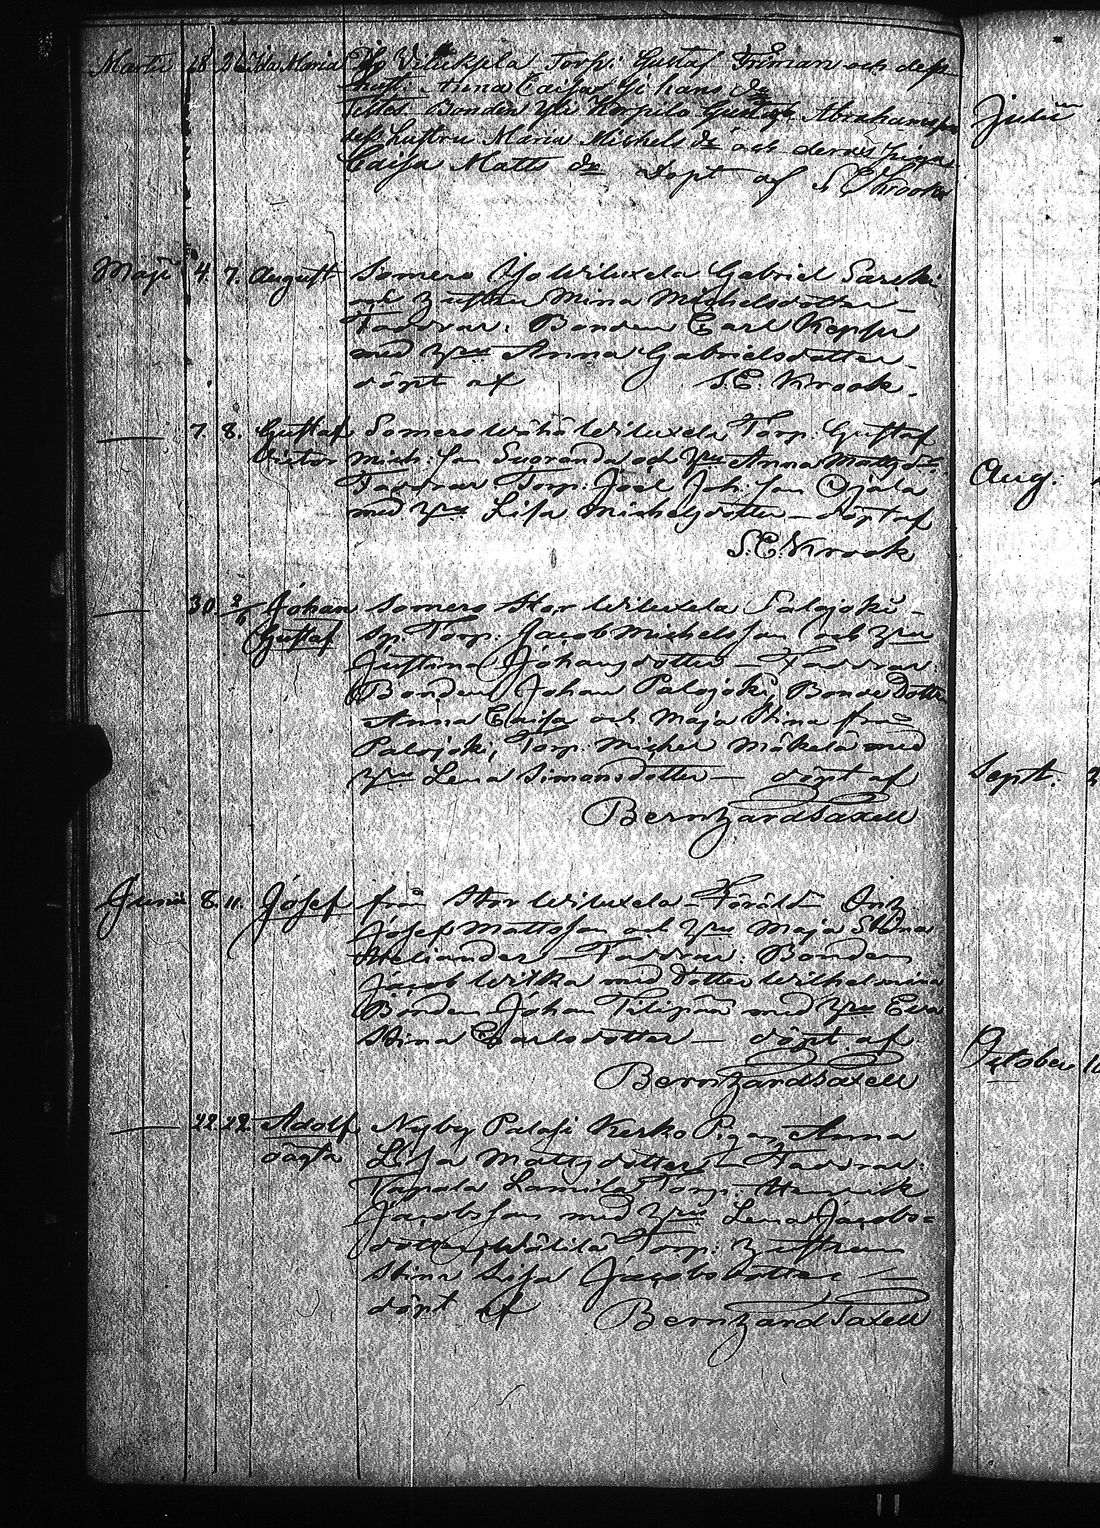 Martii 18 Ida Maria Torp: Gustaf och dess
hust: Anna Caisa
Bonden Yli Korpilo Gustaf Abrahamsson
och hustru Maria Michels dr och deras piga
Caisa Matts dr döpt af S E Krook
Maji 4. 7. August Somero Ylo Wiluxela Gabriel
och hustru Mina Michelsdotter –
Faddrar: Bonden Carl Keppi
med hru Anna Gabrielsdotter
döpt af S. E. Krook.
— 7. 8. Gustaf Somero Wähä Wiluxela Torp: Gustaf
Victor Mich: son och hru Anna Mattsdr
Faddrar Torp: Joel Joh: son Ojala
med hru Lisa Michelsdotter – döpt af
S. E. Krook
— 30 2/6 Johan Somero Stor Wiluxela Palojoki –
Gustaf Torp: Jacob Michelsson och hru
Justina Johansdotter – Faddrar:
Bonden Johan Palojoki, Bonde Dotter
Anna Caisa och Maja Stina från
Palojoki, Torp. Michel Mäkelä med
hru Lena Simonsdotter – döpt af
Bernhard Saxell
Junii 8. 11. Josef från Stor Wiluxela – Föräld
Josef Mattsson och hru Maja Stina
Faddrar: Bonden
Jacob Wilka med Dotter Wilhelmina
Bonden Johan med hru Eva
Stina Carlsdotter – döpt af
Bernhard Saxell
— 22. 22. Adolf Nyby Palasi Kerko Pigan Anna
oägta Lisa Mattsdotter – Faddrar:
Tapala Torp: Henrik
Jacobsson med hru Lena Jacobs=
dotter, Torp: hustrun
Stina Lisa Jacobsdotter –
döpt af Bernhard Saxell
Julii
Aug.
Sept.
October 10